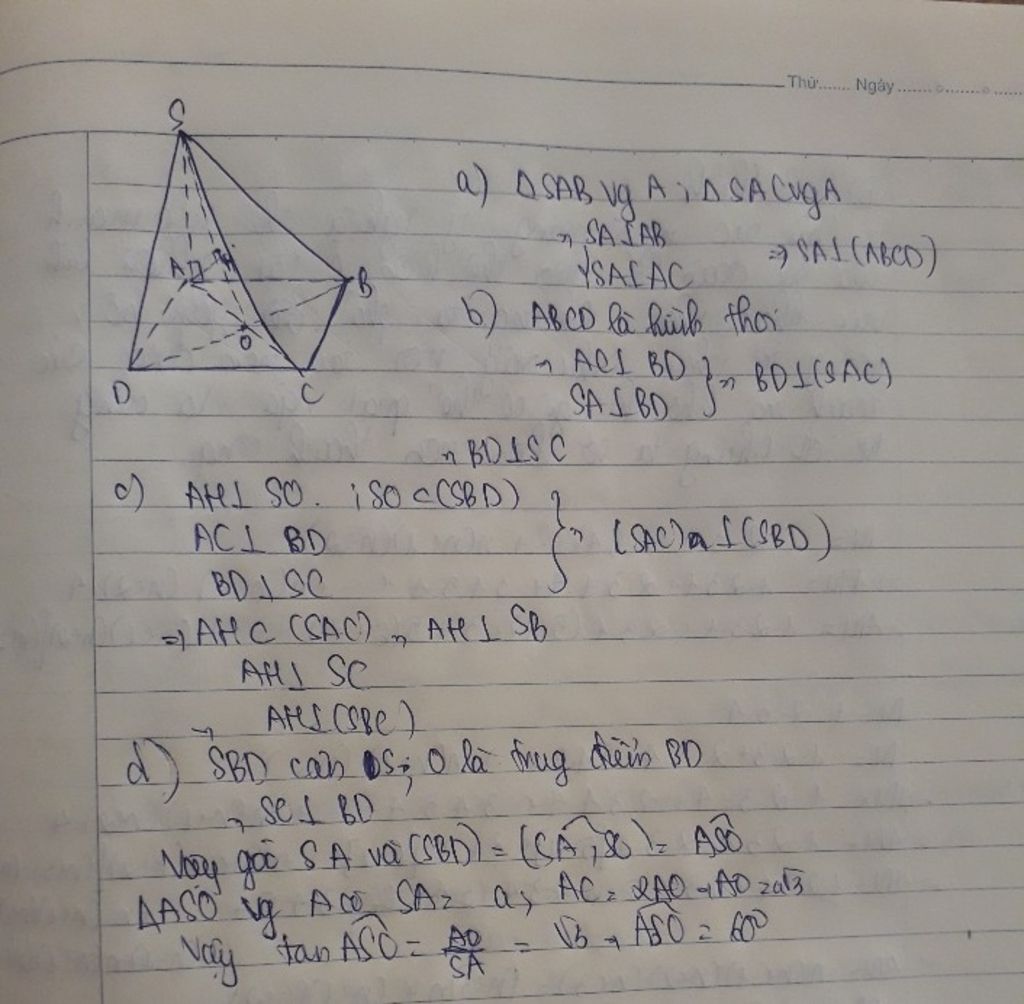 Thứ....... Ngày.......................
S
A
H
B
O
D
C
a) ΔSAB vg A ; ΔSAC vg A
→ SA⊥AB
SA⊥AC
⇒ SA⊥(ABCD)
b) ABCD là hình thoi
→ AC⊥ BD
SA⊥BD } → BD⊥(SAC)
→ BD⊥SC
c) AH⊥ SO. ; SO ⊂(SBD)
AC⊥ BD } → (SAC) ⊥(SBD)
BD⊥SC
⇒ AH ⊂ (SAC) → AH⊥ SB
AH⊥ SC
→ AH⊥(SBC)
d) SBD cân S; O là trug điểm BD
→ SC⊥ BD
Vậy góc SA và (SBD) = (SA ; SO) = ASO
ΔASO vg A có SA = a, AC = 2AO → AO = a√3
Vậy tan ASO = AO/SA = √3 → ASO = 60°